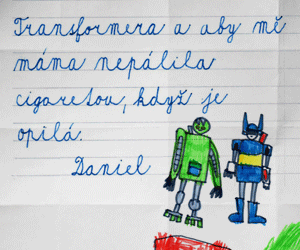 Transformera a aby mě
máma nepálila
cigaretou, když je
opilá.
Daniel